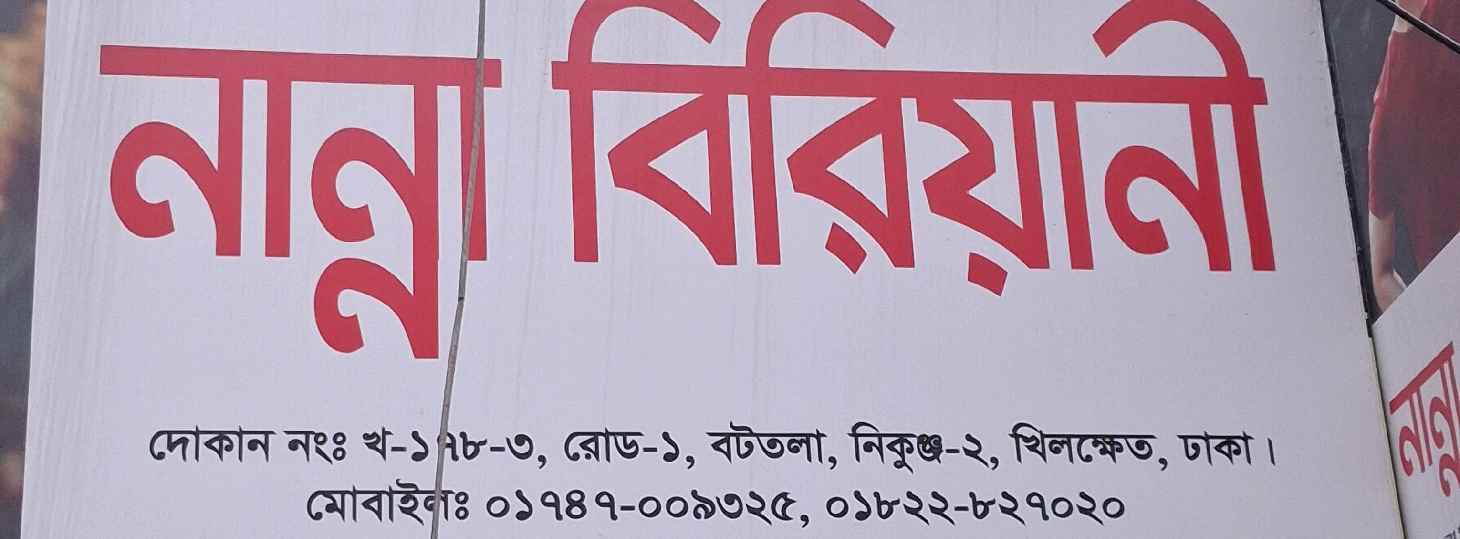 নান্না বিরিয়ানী
দোকান নংঃ খ-১৭৮-৩, রোড-১, বটতলা, নিকুঞ্জ-২, খিলক্ষেত, ঢাকা।
মোবাইলঃ ০১৭৪৭-০০৯৩২৫, ০১৮২২-৮২৭০২০
নান্না